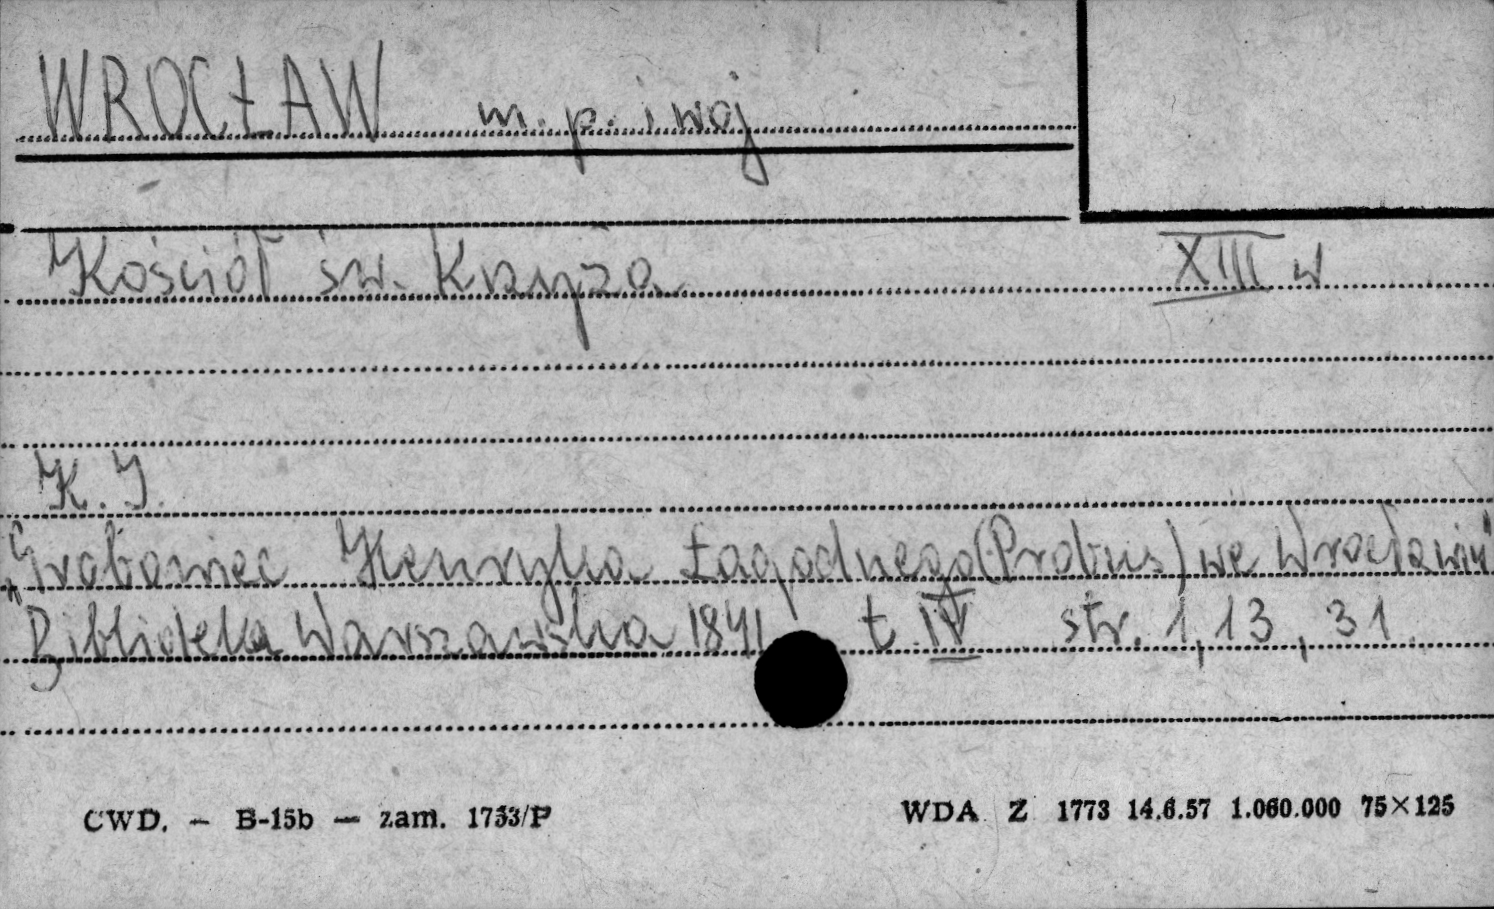 WROCŁAW m. p. i woj
Kościół św. Krzyża XIII w
K. J.
„Grobowiec Henryka Łagodnego (Probus) we Wrocławiu"
Biblioteka Warszawska 1841 t. IV str. 1, 13, 31.
CWD. — B-15b — zam. 1733/P WDA Z 1773 14.6.57 1.060.000 75×125